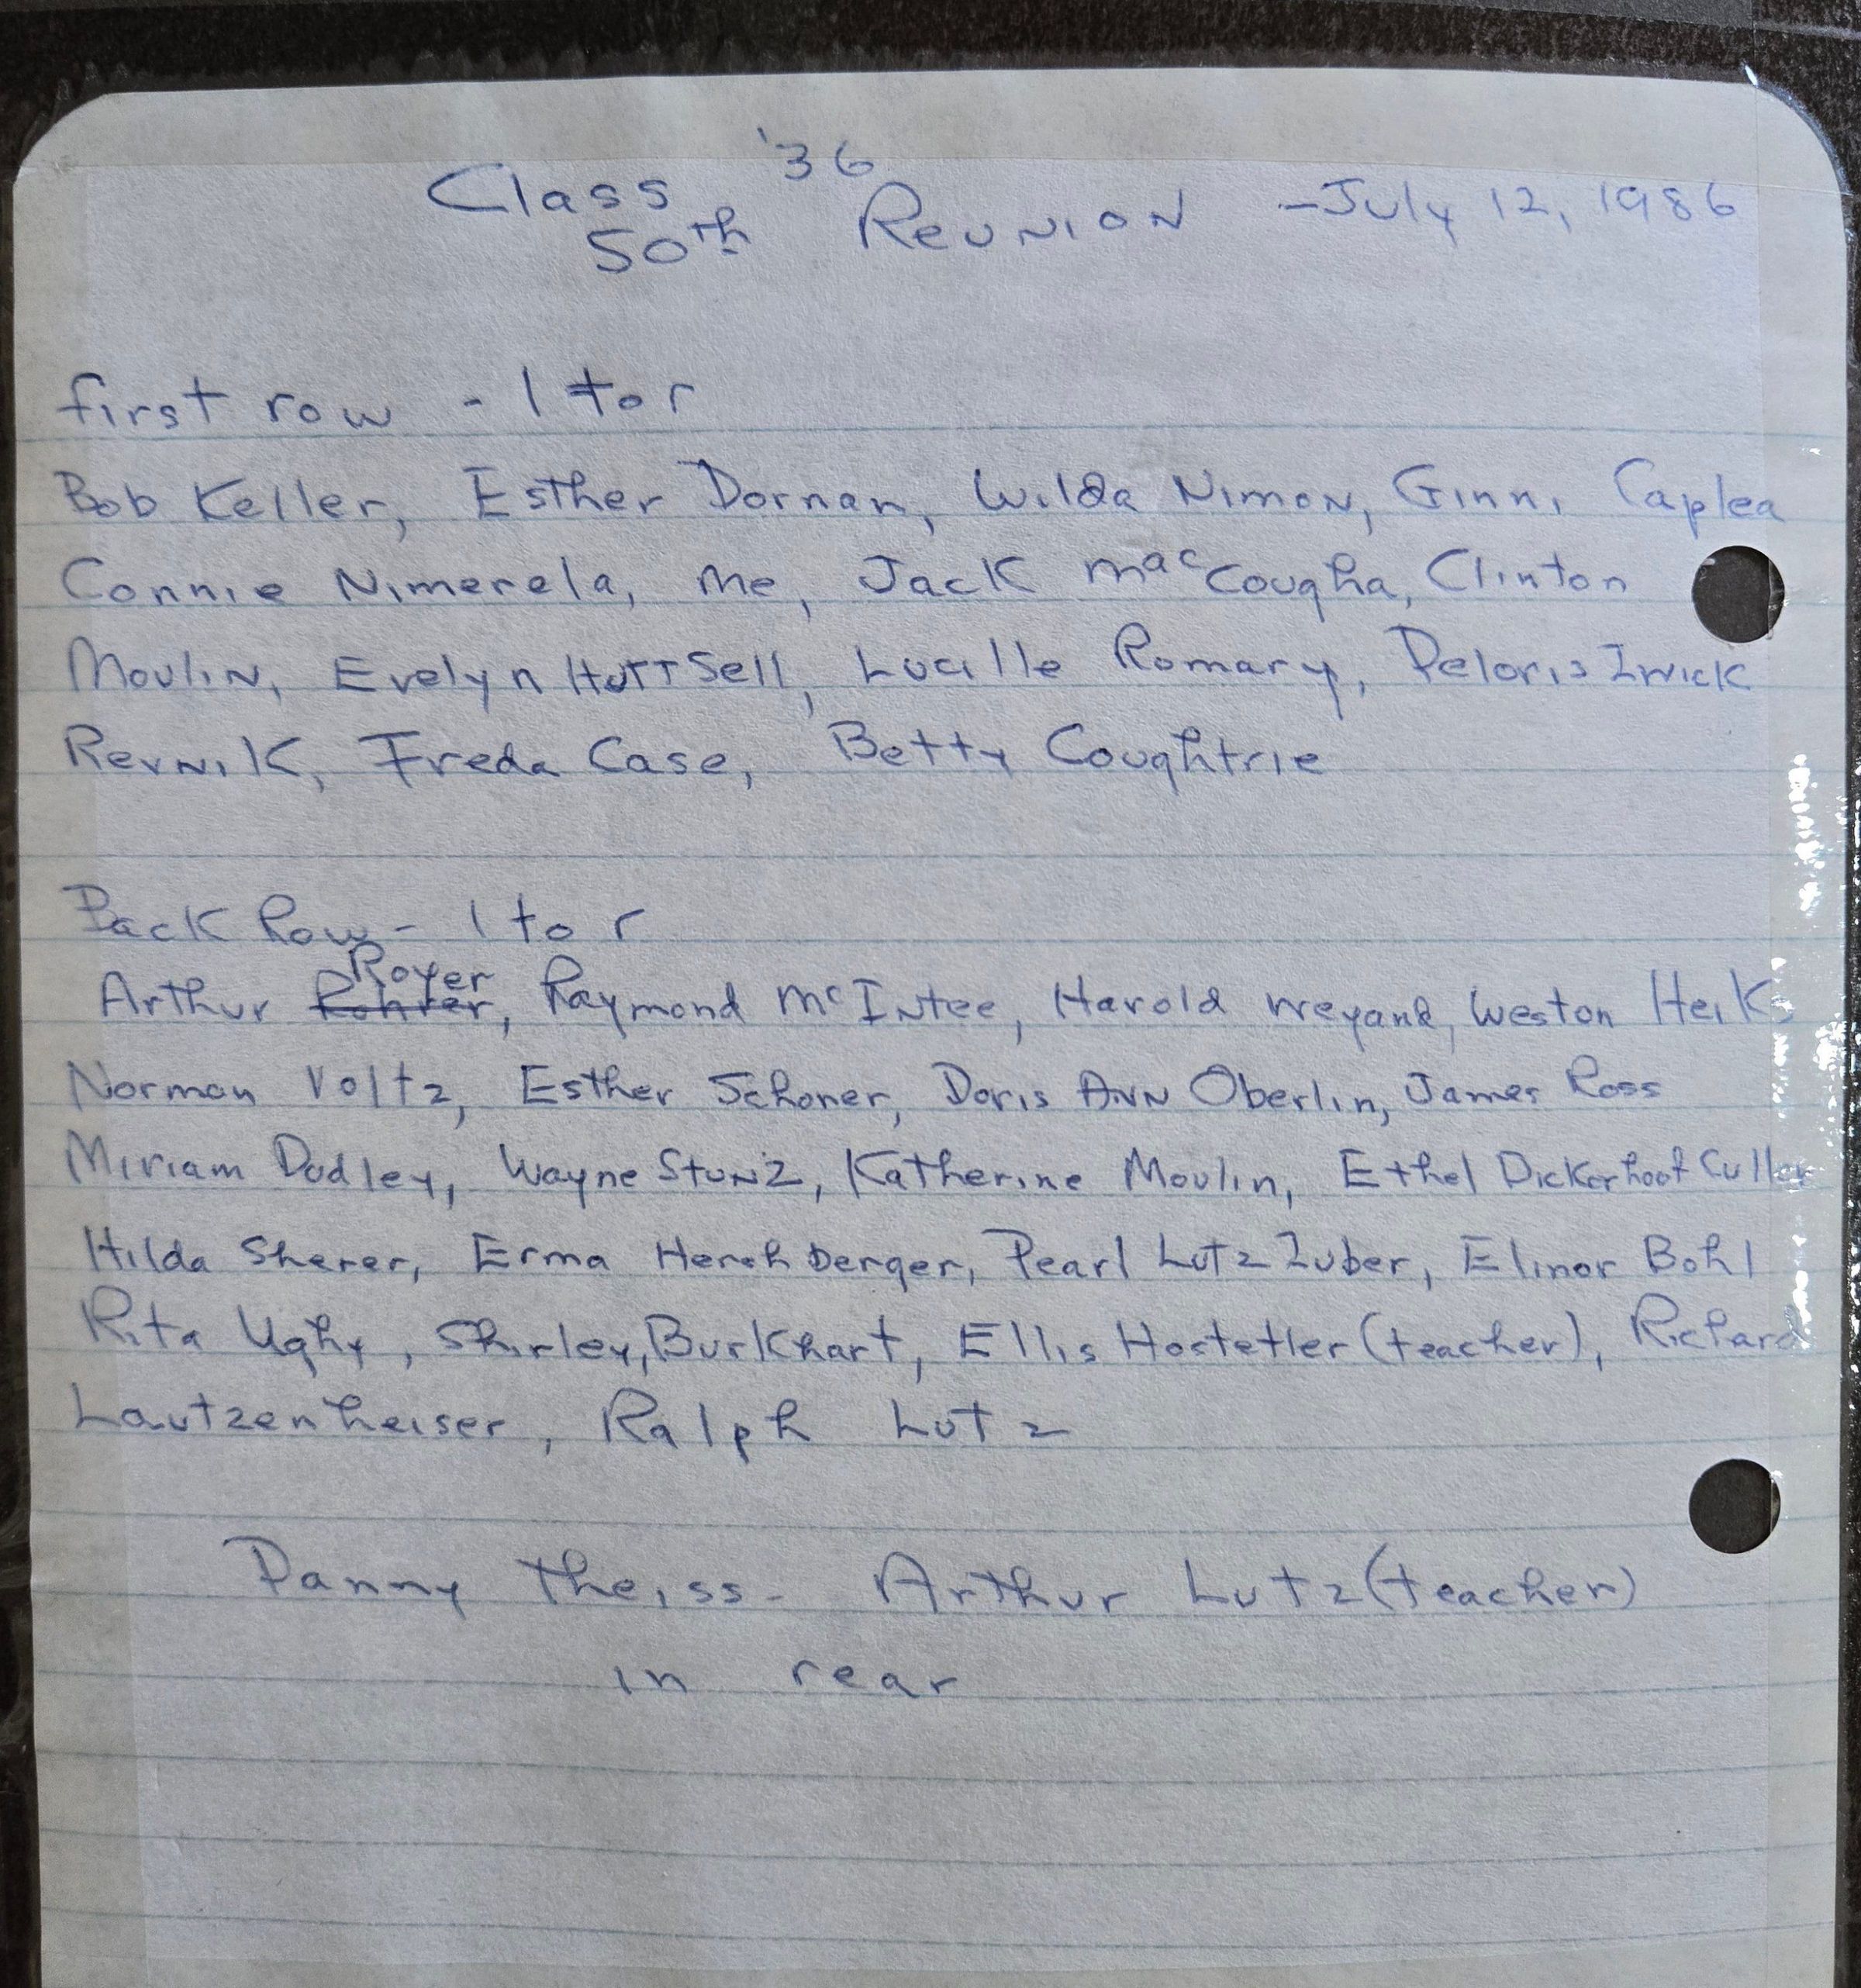 Class '36
50th Reunion - July 12, 1986
first row - l to r
Bob Keller, Esther Dornan, Wilda Nimon, Ginni Caplea
Connie Nimerela, me, Jack MacCougha, Clinton
Moulin, Evelyn Huttsell, Lucille Romary, Deloris Zwick
Revnik, Freda Case, Betty Coughtrie
Back Row - l to r
Royer
Arthur Rohrer, Raymond McIntee, Harold Weyand, Weston Heik
Norman Voltz, Esther Schoner, Doris Ann Oberlin, James Ross
Miriam Dudley, Wayne Stunz, Katherine Moulin, Ethel Dickerhoof Culler
Hilda Sherer, Erma Hershberger, Pearl Lutz Zuber, Elinor Bohl
Rita Ughy, Shirley, Burkhart, Ellis Hostetler (teacher), Richard
Lautzenheiser, Ralph Lutz
Danny Theiss - Arthur Lutz (teacher)
in rear